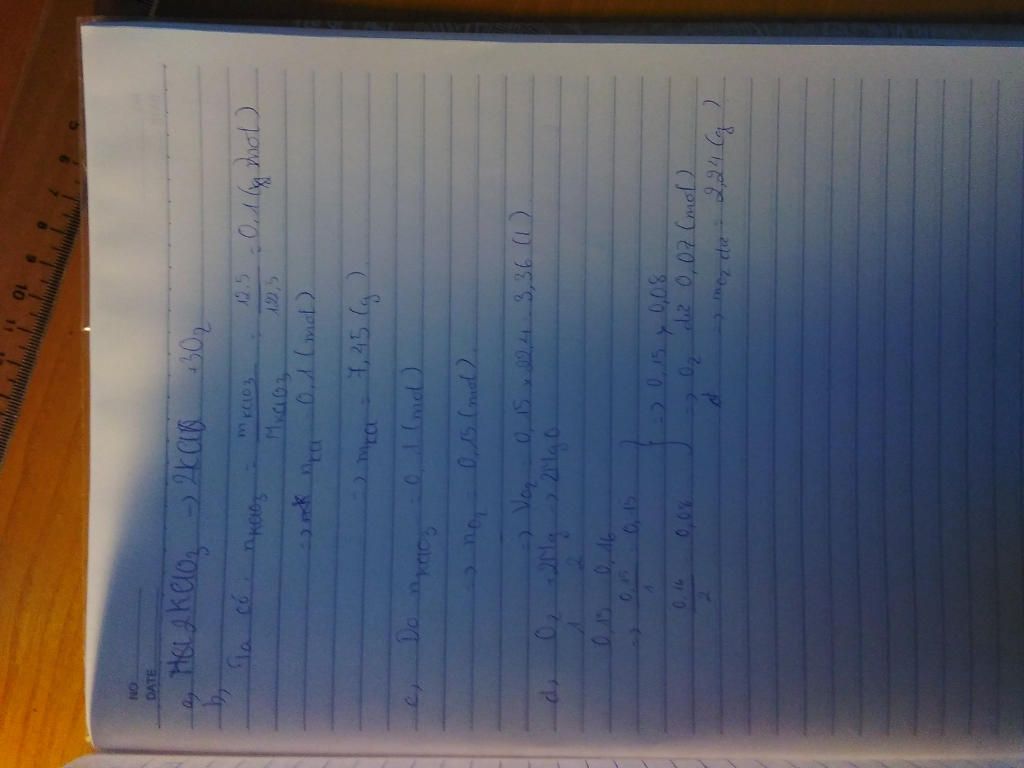 NO
DATE
a, 2KClO3 -> 2KCl +3O2
b, Ta có: nKClO3 = mKClO3 / MKClO3 = 12,5 / 122,5 = 0,1 (mol)
=> nKCl = 0,1 (mol)
=> mKCl = 7,45 (g)
c, Do nKClO3 = 0,1 (mol)
=> nO2 = 0,15 (mol)
=> VO2 = 0,15 x 22,4 = 3,36 (l)
d, O2 +2Mg -> 2MgO
1 2
0,15 0,16
=> 0,15 / 1 = 0,15
0,16 / 2 = 0,08
} => 0,15 > 0,08
=> O2 dư 0,07 (mol)
=> mO2 dư = 2,24 (g)
5
6
7
9
10
11